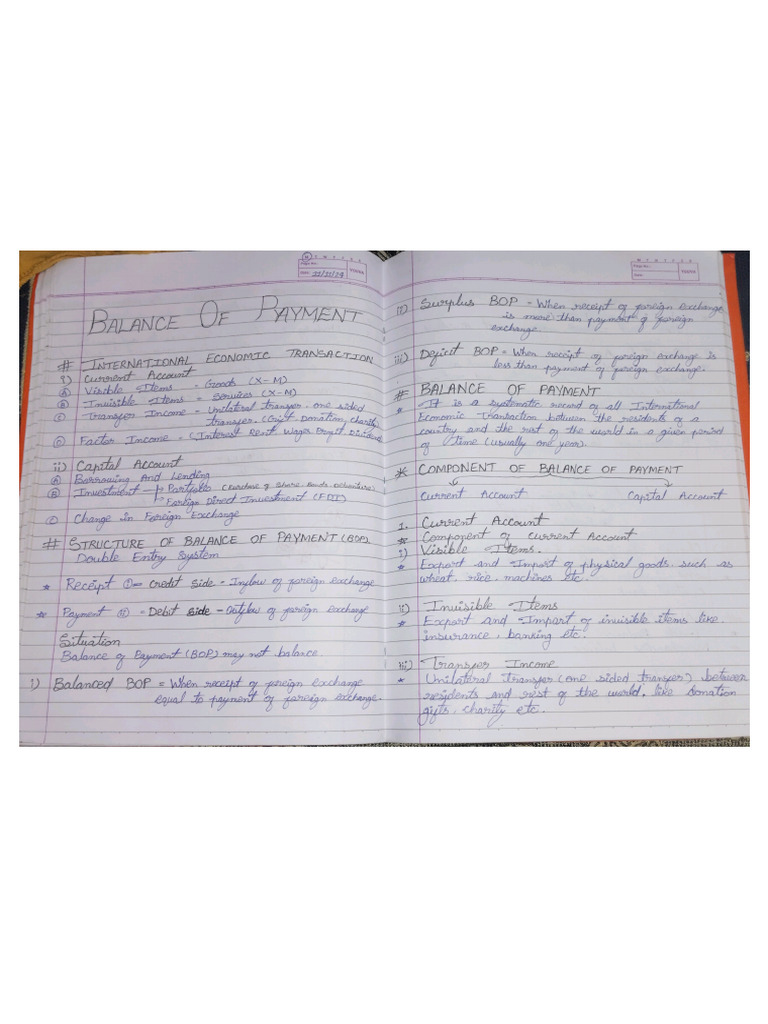 M T W T F S S
Page No.:
Date: 22/11/24
YOUVA
BALANCE OF PAYMENT
# INTERNATIONAL ECONOMIC TRANSACTION
i) Current Account
Ⓐ Visible Items = Goods (X-M)
Ⓑ Invisible Items = Services (X-M)
Ⓒ Transfer Income = Unilateral transfer - one sided
transfer. (Gift, Donation, charity)
Ⓓ Factor Income = (Interest Rent Wages Profit Dividend
ii) Capital Account
Ⓐ Borrowing And Lending
Ⓑ Investment → Portfolio (Purchase of Share, Bonds, Debenture)
→ Foreign Direct Investment (FDI)
Ⓒ Change in Foreign Exchange
# STRUCTURE OF BALANCE OF PAYMENT (BOP)
Double Entry System
* Receipt ①= Credit Side - Inflow of foreign exchange
* Payment ⑪ = Debit Side - Outflow of foreign exchange
Situation
Balance of Payment (BOP) may not balance.
i) Balanced BOP = When receipt of foreign exchange
equal to payment of foreign exchange.
M T W T F S S
Page No.:
Date:
YOUVA
Surplus BOP = When receipt of foreign exchange
is more than payment of foreign
exchange.
iii) Deficit BOP = When receipt of foreign exchange is
less than payment of foreign exchange.
# BALANCE OF PAYMENT
* It is a systematic record of all International
Economic Transaction between the residents of a
country and the rest of the world in a given period
of time (usually one year).
* COMPONENT OF BALANCE OF PAYMENT
Current Account Capital Account
1. Current Account
* Component of current Account
i) Visible Items.
* Export and Import of physical goods, such as
wheat, rice, machines etc.
ii) Invisible Items
* Export and Import of invisible items like
insurance, banking etc.
iii) Transfer Income
* Unilateral Transfer (one sided transfer) between
residents and rest of the world, like donation
gifts, charity etc.